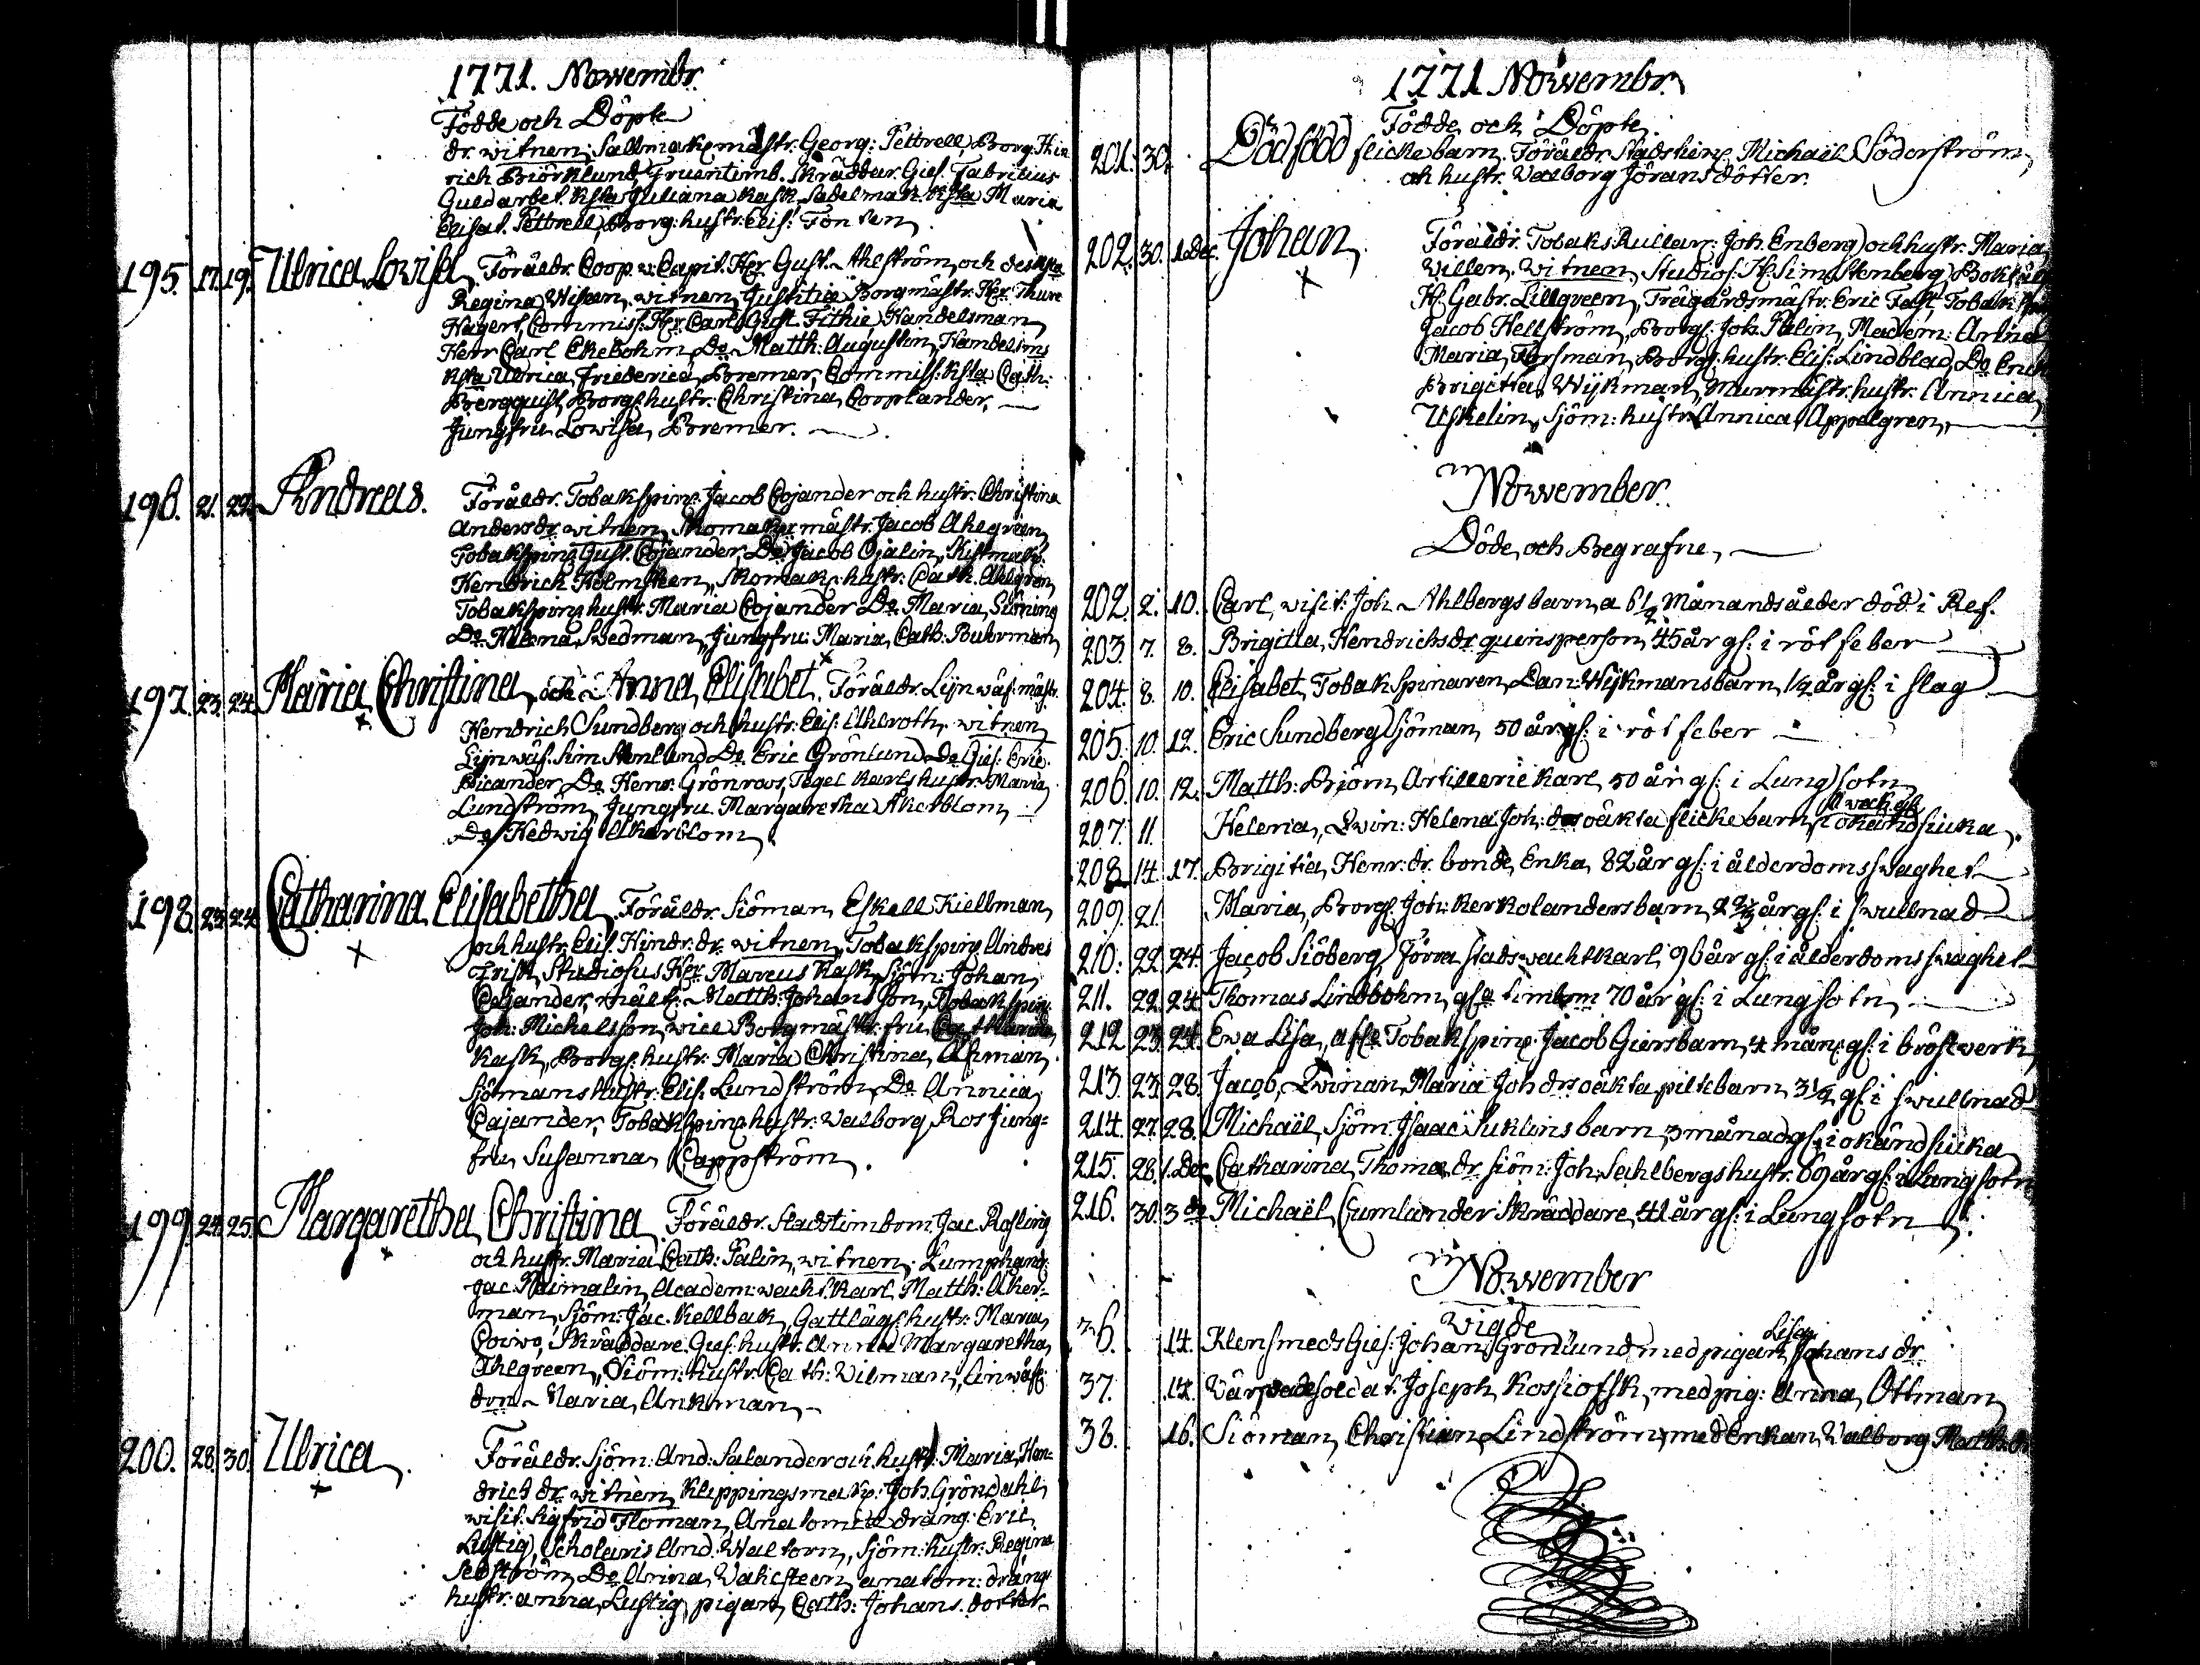 1771. Novvembr.
Födde och Döpte
dr. witnen, Sadlmakemästr. Georg: Tettrell Borg. Hin
rich Biörklund, Gruentimb. Skräddar. Gies. Fabritius
Guldarbet. Ksta Juliana Kask Sadelmak. Ksta Maria
Elisab. Tettrell, Borg: hustr: Elis: Fonten
195. 17. 19. Ulrica Lovisa, Föräldr. Coop v: Capit. Hr. Gust. Ahlström och dess
Regina Wisan, witnen, Justitiæ Borgmästr. Hr. Thure
Hagert, Commiss: Hr. Carl Gust. Fithie Handelsman
Herr Carl Ekebohm, Do Matth: Augustin, Handelsms
Ksta Ulrica Friederica Bremer, Commiss: Ksta Cath:
Bergquist, Borgs hustr: Christina Cooplander,
Jungfru Lowisa Bremer.
196. 21. 22. Andreas. Föräldr. Tobakspinr: Jacob Cojander och hustr. Christina
Andersdr. witnen, Skomakr mästr. Jacob Ahlgreen,
Tobakspinr Gust. Cojander Do Jacob Ojalin,
Hendrich Holmsteen, Skomakr: hustr: Cath. Ahlgren
Tobakspinr hustr. Maria Cojander Do Maria
Do Helena Wedman, Jungfru: Maria Cath. Buhrman
197. 23. 24. Maria Christina, och Anna Elisabet. Föräldr. Lijnwäf: mästr.
Hendrich Sundberg och hustr: Elis: Ahlroth, witnen
Lijnwäf. Sim Stenlund Do Eric Grönlund Do Gies: Eric
Bicander, Do Henr: Grönroos, Tegel karls hustr. Maria
Lundström, Jungfru Margaretha Åkerblom
Do Hedwig Åkerblom
198. 23. 24. Catharina Elisabetha, Föräldr. Siöman Eskell Kiellman
och hustr. Elis: Hindr. dr. witnen, Tobakspinr Andres
Frisk, Studiosus Hr. Marcus Kask, Sjöm: Johan
Cajander, Matth: Johansson, Tobakspinr
Joh: Michelsson, vice Borgmästr. fru Catharina
Kask, Borgs: hustr: Maria Christina Åhman,
Sjömans hustr: Elis: Lundström Do Annica
Cajander, Tobakspinr hustr: Walborg Ros Jung=
fru Susanna Cappström.
199. 24. 25. Margaretha Christina, Föräldr. Stadstimbrm. Jac. Rosling
och hustr. Maria Cath: Palin, witnen,
Jac Raimalin, Academ: wachtkarl Matth: Åker=
man, Sjöm: Jac. Kellbak, Gattlägs hustr: Maria
Skräddare Gies: hustr: Anna Margaretha
Ahlgreen, Siöm: hustr: Cath: Wilman, Linwäf
dren Maria Ankman
200. 28. 30. Ulrica. Föräldr. Sjöm: And: Salander och hustr: Maria Hen=
drich dr. witnen, Klippingsmakr: Joh. Gröndahl
visit. Sigfrid Floman, Anatomie dräng: Eric
Lustig, Scholaris And. Waltorn, Sjöm: hustr: Regina
Sebström, Do Anna Walisteen, anatom: drängs
hustr: anna Lustig pigan Cath: Johans. dotter
1771 Novvembr.
Födde och Döpte
201. 30. Dödfödd flickebarn. Föräldr. Michaël Söderström,
och hustr. Walborg Jöransdotter.
202. 30. 1. Dec. Johan Föräldr. Tobaks Rullarr: Joh. Enberg och hustr. Maria
Willen, witnen, Studios: Hr. Sim. Stenberg,
Hr. Gabr. Lillgreen, Trägårdsmästr. Eric Fast, Tobak:
Jacob Hellström, Borgs: Joh. Palin, Madem: Anna
Maria Forsman, Borgs: hustr. Elis: Lindblad, Do
Brigitta Wijkman, Murmästr. hustr. Annica
Uskelin, Sjöm: hustr. Annica Appelgren
Novvember.
Döde, och Begrafne,
202. 2. 10. Carl, visit: Joh. Ahlbergs barn, a 6 1/2 Månands ålder död i Ref.
203. 7. 8. Brigitta, Hendrichsdr quinsperson, 45 år gl: i rötfeber
204. 8. 10. Elisabet, Tobakspinaren, Dan: Wijkmans barn, 1/2 år gl: i slag
205. 10. 12. Eric Sundberg Sjöman, 50 år gl: i rötfeber
206. 10. 12. Matth: Biörn, Artillerie karl, 50 år gl: i Lungsotn
207. 11. Helena, Qwin: Helena Joh: dr oäkta flickebarn, i okänd siuka.
208. 14. 17. Brigitta, Henr: dr. bonde Enka, 82 år gl: i ålderdoms swaghet
209. 21. Maria, Borgs. Joh: Kerkolanders barn, år gl: i swullnad
210. 22. 24. Jacob Siöberg, förra stadswachtkarl, 96 år gl: i ålderdoms swaghet
211. 22. 24. Thomas Lindbohm, timbrm 70 år gl: i Lungsotn
212. 23. 24. Ewa Lisa, Tobakspinr. Jacob Giers barn, 4 mån: gl: i bröstwerk
213. 23. 28. Jacob, Qwinan Maria Joh drs oäkta piltebarn, 3 1/2 gl: i swullnad
214. 27. 28. Michaël, Sjöm: Isaac Suklins barn, 3 månad gl: i okänd siuka
215. 28. 1. Dec. Catharina, Thoma dr. siöm: Joh. Sahlbergs hustr. 69 år gl: i Lungsotn
216. 30. 3 do Michaël Gumlander Skräddare, 41 år gl: i Lungsotn
Novvember
Wigde
36. 14. Klensmeds Gies: Johan Grönlund med pigan Lisa Johans dr.
37. 14. Wärfwade soldat. Joseph Kossiofsk, med pig: Anna Ottman
38. 16. Siöman, Christian Lindström, med Enkan Walborg Matths dr